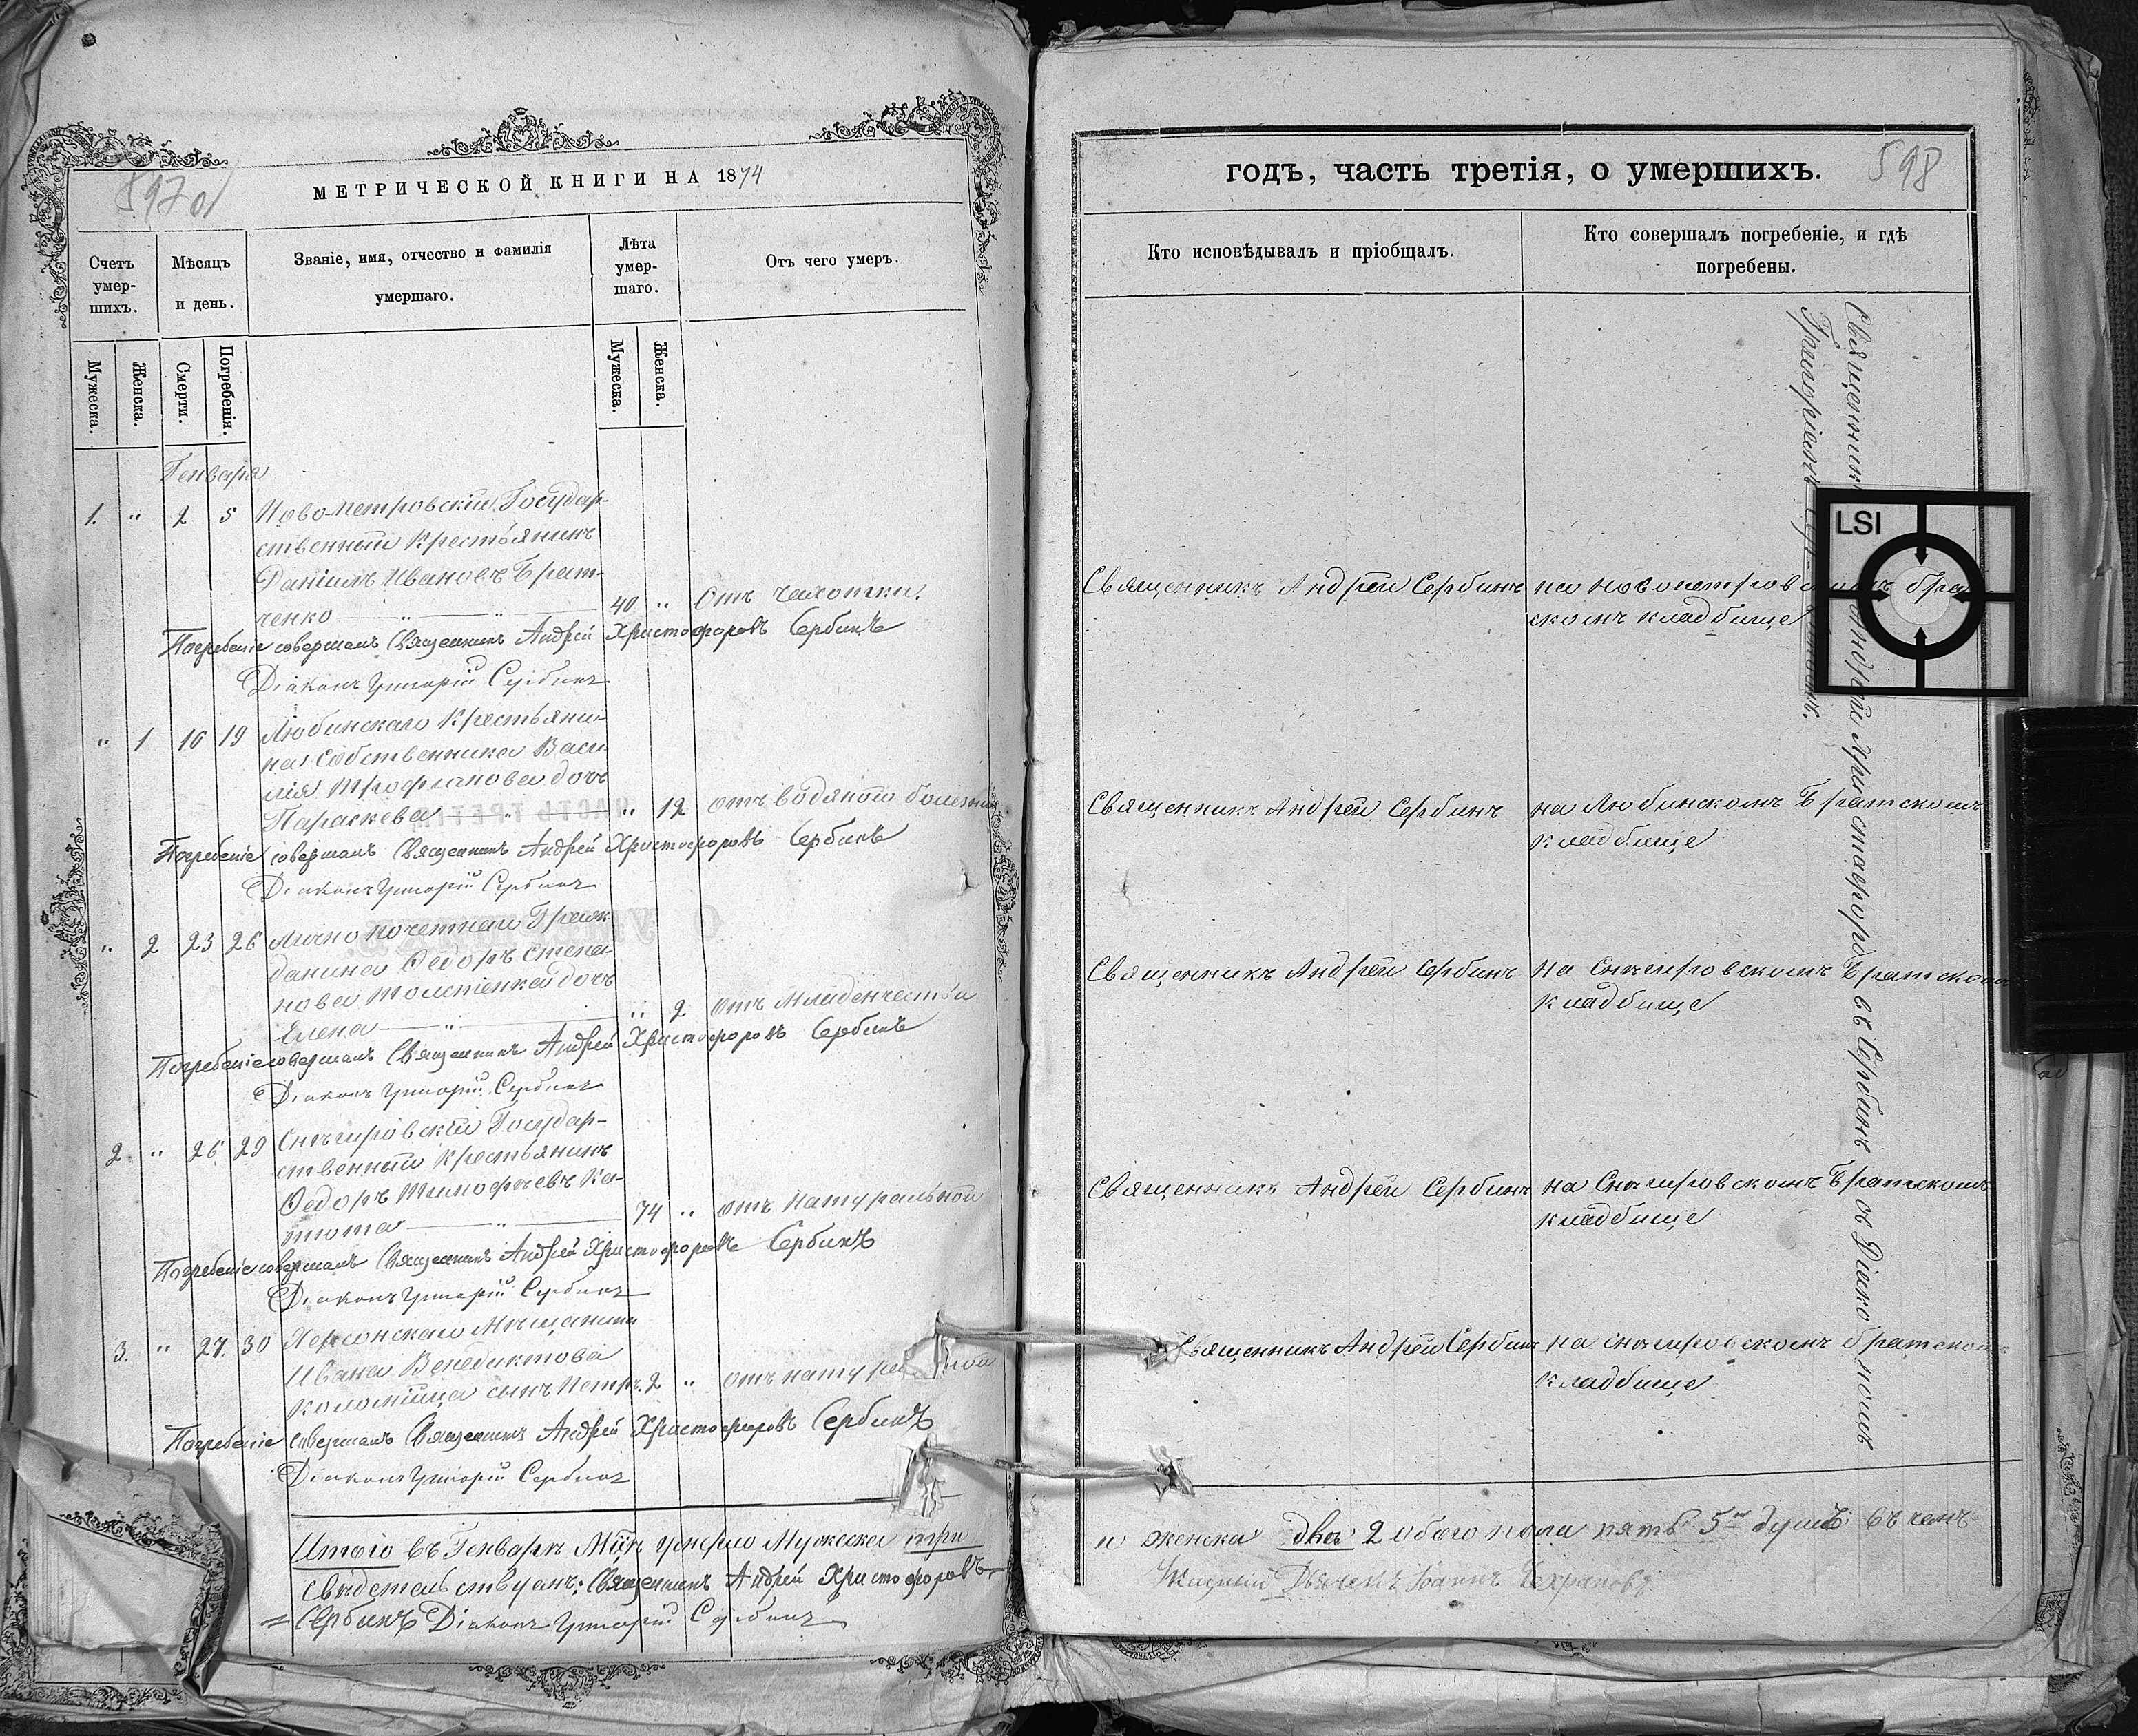 597 об
МЕТРИЧЕСКОЙ КНИГИ НА 1874
Счетъ умер-шихъ.
Мѣсяцъ и день.
Званіе, имя, отчество и фамилія умершаго.
Лѣта умер-шаго.
Отъ чего умеръ.
Мужеска.
Женска.
Смерти.
Погребенія.
Мужеска.
Женска.
Генваря
1. „ 2 5 Ново-петровскій Государ-
ственный Крестьянинъ
Даніилъ Ивановъ Брат-
ченко 40 „ Отъ чахотки.
Погребеніе совершалъ Священникъ Андрей Христофоровъ Сербинъ
Діаконъ Григорій Сербинъ
„ 1 16 19 Любинскаго Крестьяни-
на Собственника Васи-
лія Трофимова дочь
Параскева „ 12 отъ водяной болезни
Погребеніе совершалъ Священникъ Андрей Христофоровъ Сербинъ
Діаконъ Григорій Сербинъ
„ 2 23 26 Лично почетнаго Граж-
данина Ѳедоръ Степа-
нова Толстенка дочь
Елена „ 2 Отъ младенчества
Погребеніе совершалъ Священникъ Андрей Христофоровъ Сербинъ
Діаконъ Григорій Сербинъ
2 „ 26 29 Снѣгировскій Государ-
ственный Крестьянинъ
Ѳедоръ Тимофѣевъ Ка-
тюта 74 „ отъ натуральной
Погребеніе совершалъ Священникъ Андрей Христофоровъ Сербинъ
Діаконъ Григорій Сербинъ
3. „ 27. 30 Херсонскаго Мѣщанина
Ивана Венедиктова
Коломійца сынъ Петръ. 2 „ отъ натуральной
Погребеніе совершалъ Священникъ Андрей Христофоровъ Сербинъ
Діаконъ Григорій Сербинъ
Итого въ Генварѣ М҃цѣ умерло Мужеска три
свидетельствуемъ: Священникъ Андрей Христофоровъ
Сербинъ Діаконъ Григорій Сербинъ
598
годъ, часть третія, о умершихъ.
Кто исповѣдывалъ и пріобщалъ.
Кто совершалъ погребеніе, и гдѣ погребены.
Священникъ Андрей Сербинъ на новопетровскомъ брат
скомъ кладбище
Священникъ Андрей Сербинъ на Любинскомъ Братскомъ
кладбище
Священникъ Андрей Сербинъ на Снѣгировскомъ Братскомъ
кладбище
Священникъ Андрей Сербинъ на Снѣгировскомъ Братскомъ
кладбище
Священникъ Андрей Сербинъ на снѣгировскомъ братскомъ
кладбище
Священникъ Андрей Христофоровъ Сербинъ съ Діакономъ
Григоріемъ
LSI
и женска двѣ 2 обоего пола пять 5 душъ въ чемъ
Дьячекъ Іоаннъ